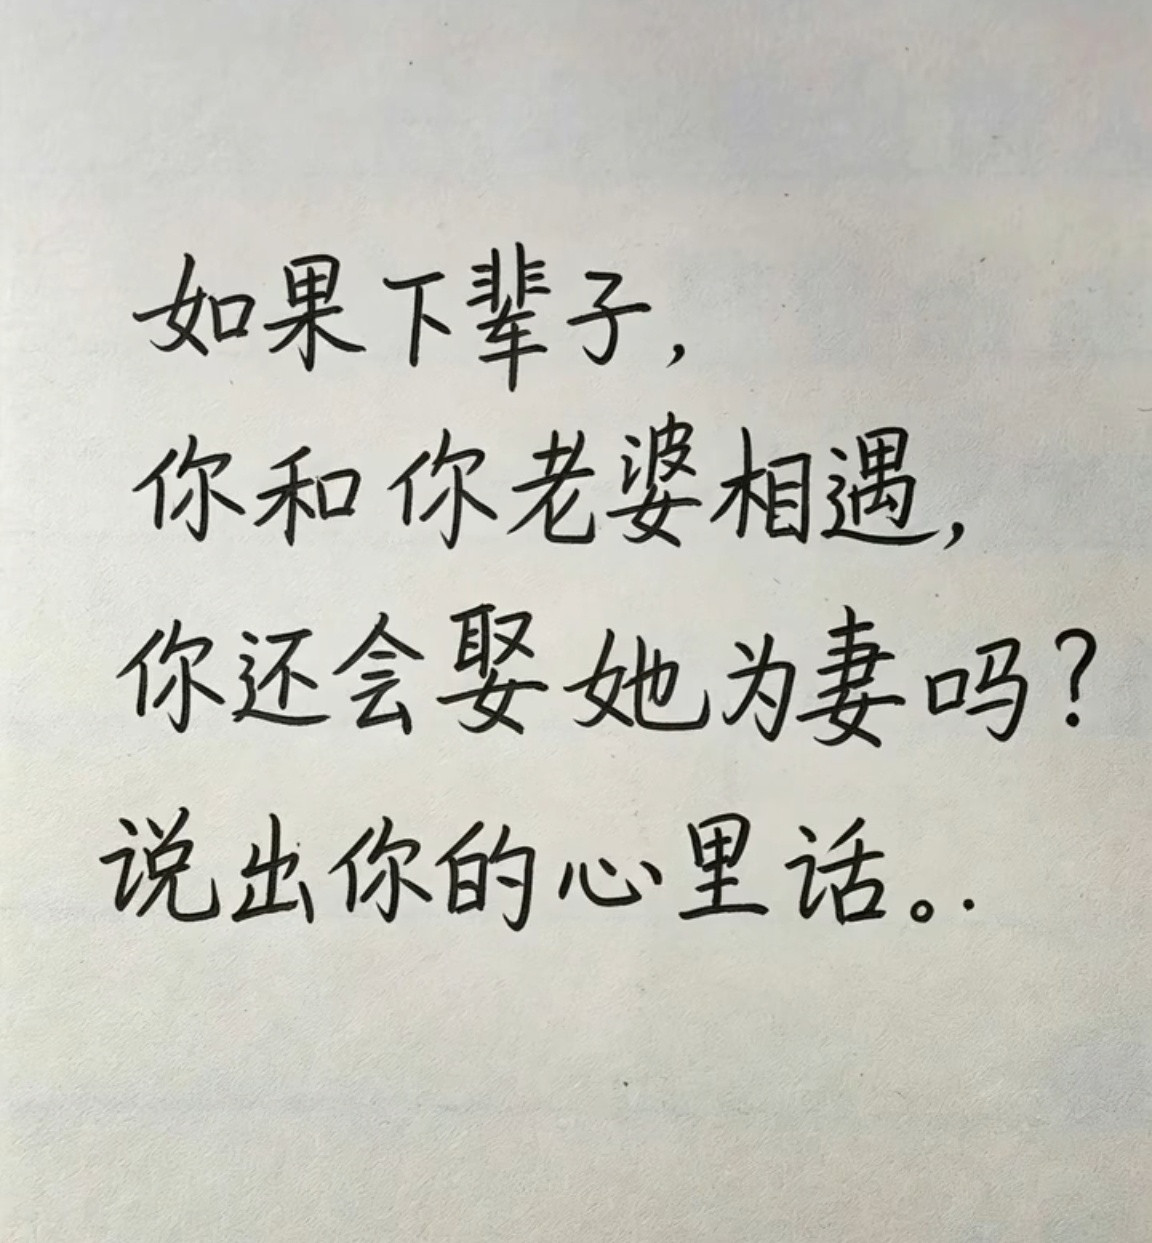 如果下辈子,
你和你老婆相遇,
你还会娶她为妻吗?
说出你的心里话。.